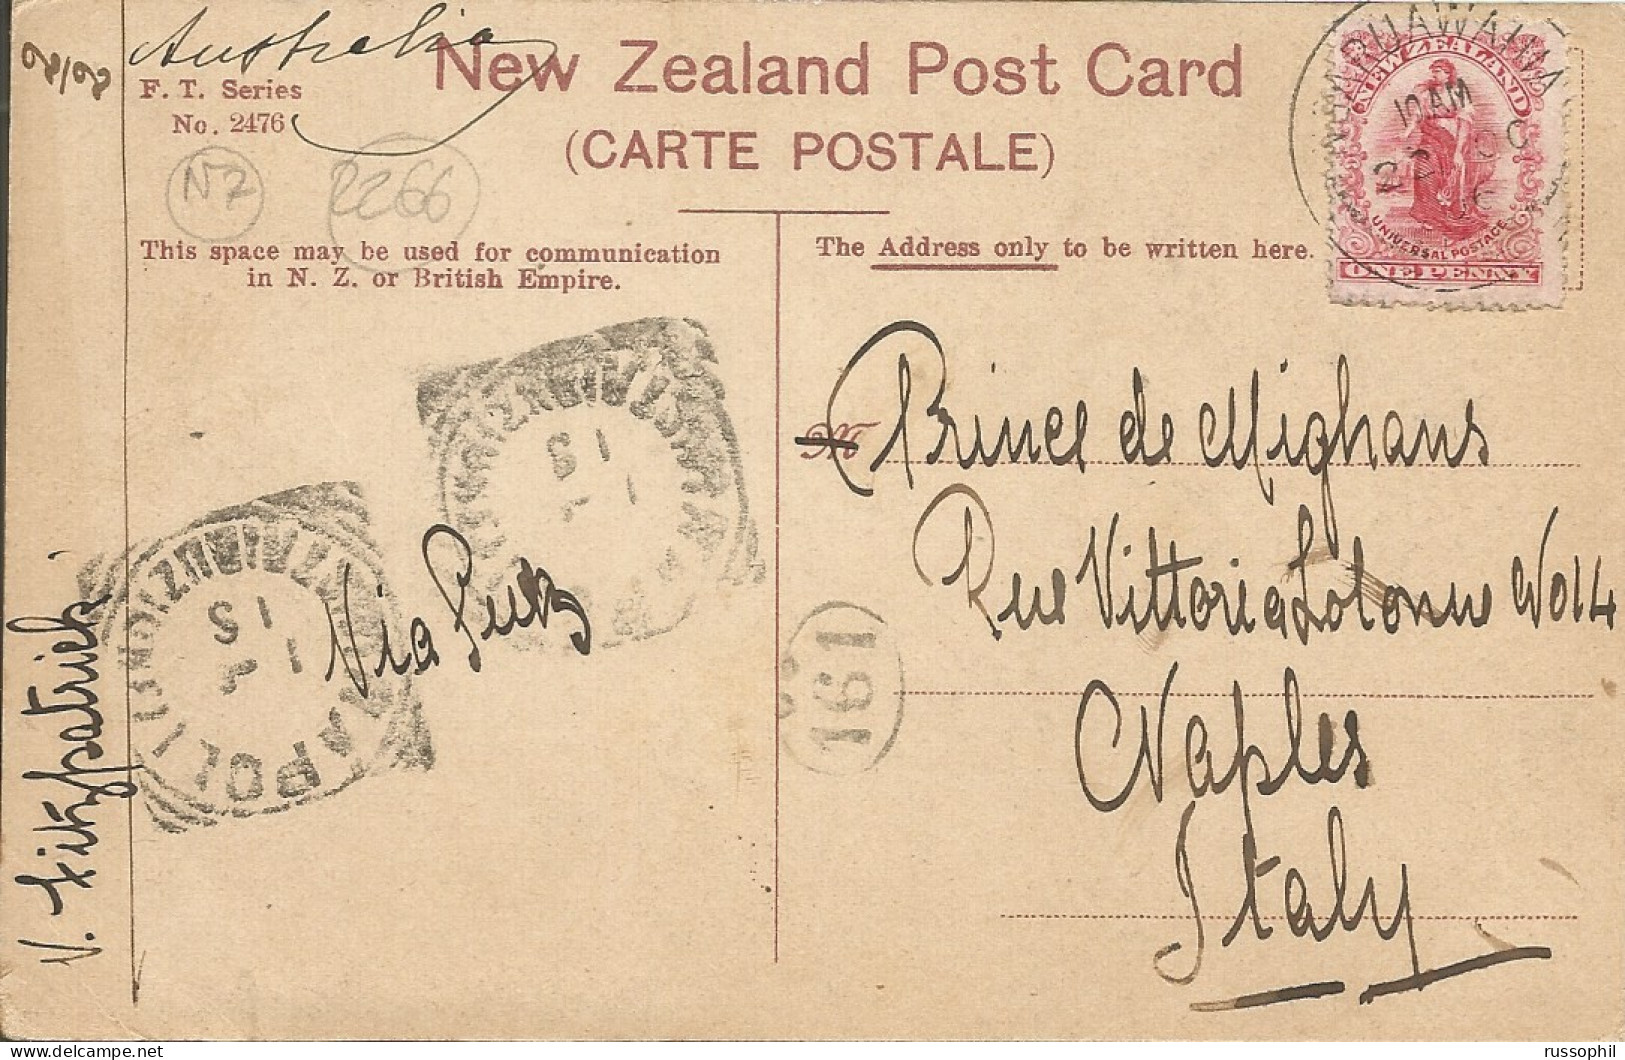 Australia
2/2
New Zealand Post Card
F. T. Series
No. 2476
(CARTE POSTALE)
NZ
2266
This space may be used for communication
in N. Z. or British Empire.
The Address only to be written here.
NEW ZEALAND
10 AM
22 OC
UNIVERSAL POSTAGE
ONE PENNY
M
Prince de Mighans
Rue Vittoria Colonna No 14
Naples
Italy
Via
161
NAPOLI
V. Fitzpatrick
russophil